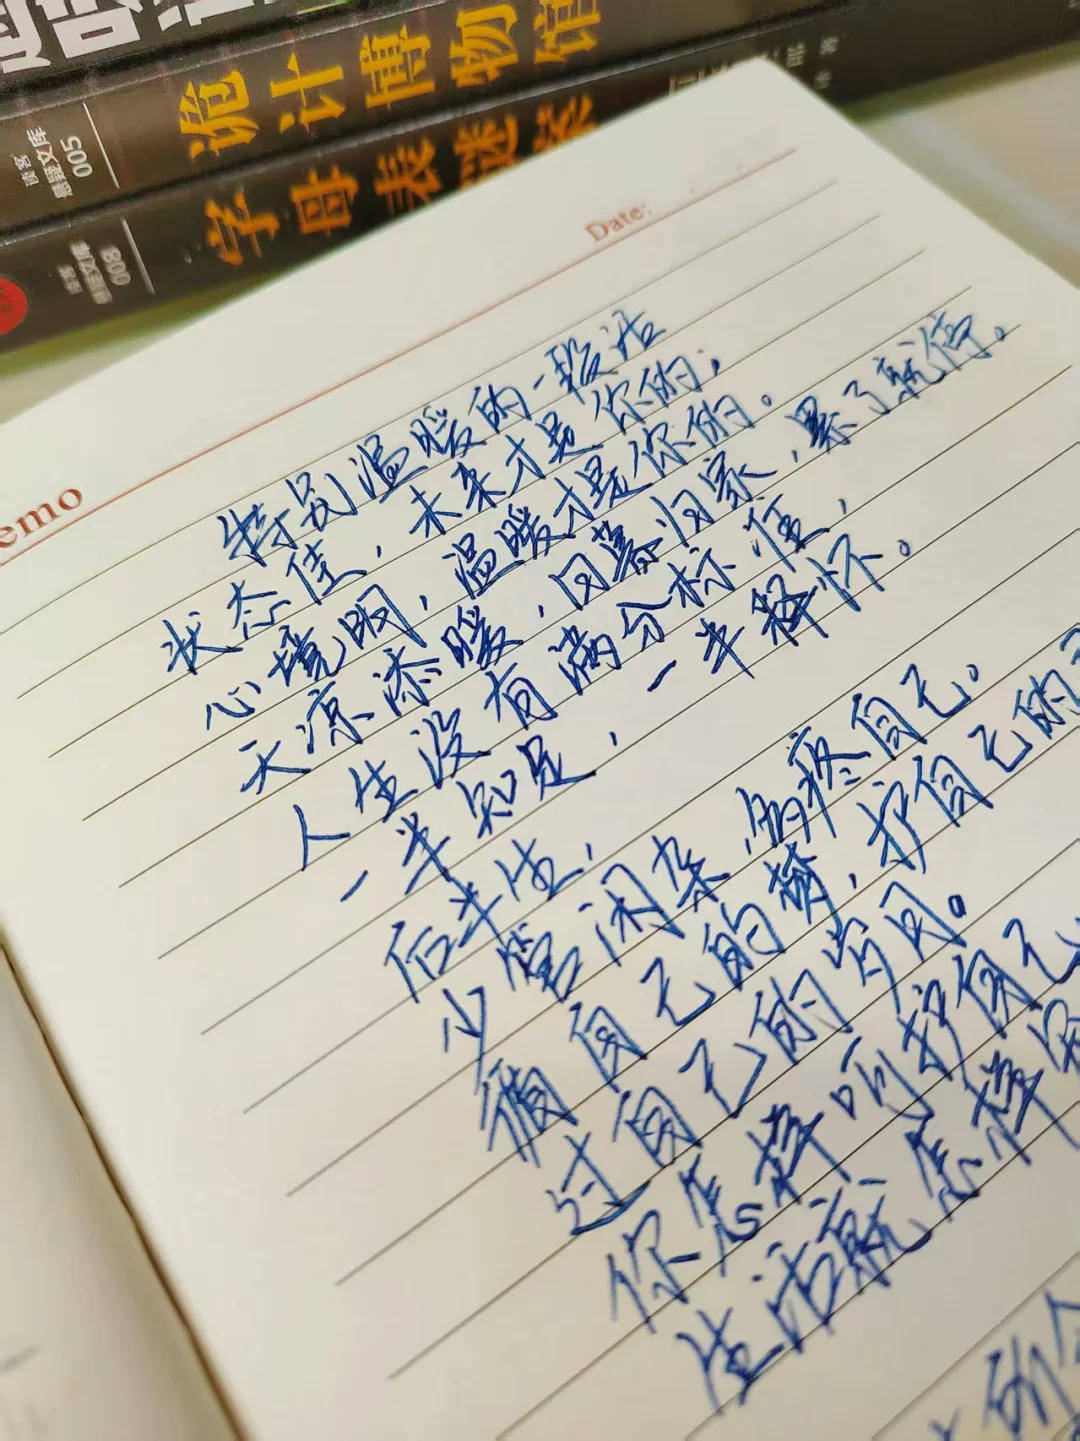 诡计博物馆
读客
悬疑文库
005
字母表谜案
008
Date:
emo
特别温暖的一段话
状态佳，未来才是你的；
心境明，温暖才是你的。
天凉添暖，日暮归家，累了就停。
人生没有满分标准，
一半知足，一半释怀。
后半生，
少管闲杂，多疼自己。
做自己的梦，护自己的
过自己的岁月。
你怎样呵护自己
生活就怎样